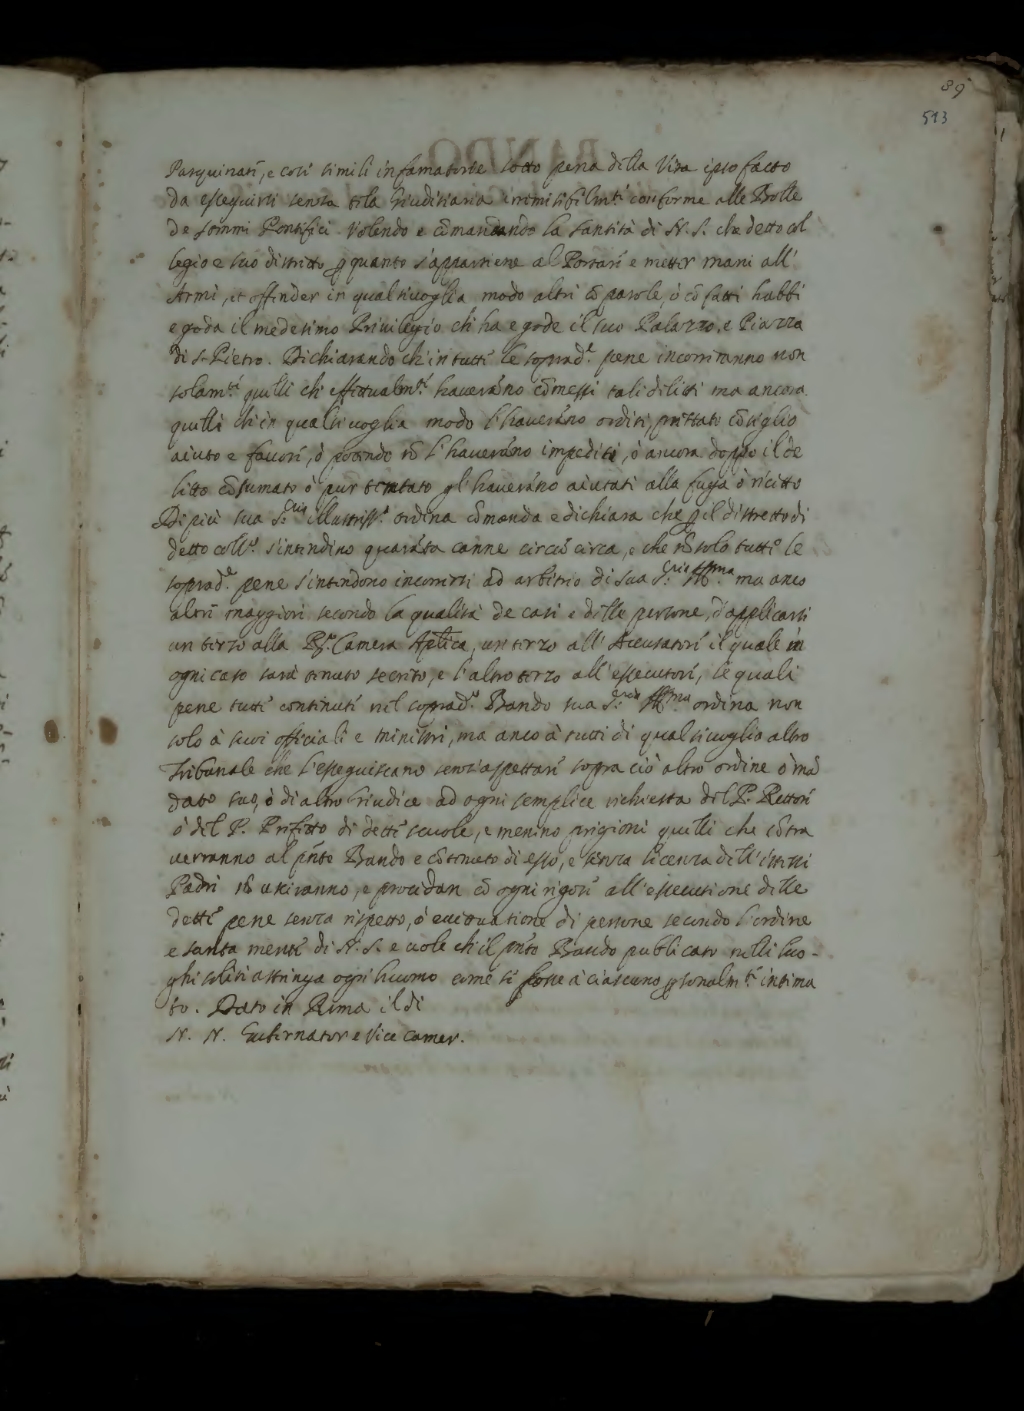 89
513
Pasquinati, e così simili infamatorie sotto pena della Vita ipso facto
da esseguirsi senza tela Giuditiaria irremisibilmte conforme alle Bolle
de sommi Pontefici Volendo e comandando la santità di N. S. che detto col
legio e suo distritto p quanto s'appartiene al Portare e metter mani all'
Armi, et offender in qualsivoglia modo altri cō parole, ò cō fatti habbi
e goda il medesimo Privilegio ch' ha e gode il suo Palazzo, e Piazza
di S. Pietro. Dichiarando ch' in tutte le soprade pene incorreranno non
solamte quelli ch' effettualmte haveranno cōmessi tali delitti ma ancora
quelli ch' in qualsivoglia modo l'haveranno orditi, prestato cōsiglio
aiuto e favore, ò potendo nō l'haveranno impediti, ò ancora doppo il de
litto cōsumato ò pur tentato gl'haveranno aiutati alla fuga ò ricetto
Di più sua S.ria illustriss.a ordina cōmanda e dichiara che p il distretto di
detto coll.o s'intendino quaranta canne circū circa, e che nō solo tutte le
soprad.e pene s'intendono incorrersi ad arbitrio di sua S.ria Ill.ma ma anco
altre maggiori secondo la qualità de casi e delle persone, d'applicarsi
un terzo alla R. Camera Aplica, un terzo all' Accusatore il quale in
ogni caso sarà tenuto secreto, e l'altro terzo all' essecutore, le quali
pene tutte contenute nel soprad.o Bando sua S.ria Ill.ma ordina non
solo à suoi officiali e ministri, ma anco à tutti di qualsivoglio altro
Tribunale che l'esseguiscano senz' aspettare sopra ciò altro ordine ò mā
dato suo, ò di altro Giudice ad ogni semplice richiesta del P. Rettore
ò del P. Prefetto di dette scuole, e menino prigioni quelli che cōtra
verranno al pnte Bando e cōtenuto di esso, e senza licenza dell' istessi
Padri nō usciranno, e procedan cō ogni rigore all' essecutione delle
dette pene senza rispetto, ò eccettuatione di persone secondo l'ordine
e santa mente di N. S. e vuole ch' il pnte Bando publicato nelli luo-
ghi soliti astringa ogni huomo come se fosse à ciascuno psonalmte intima
to. Dato in Roma il di
N. N. Gubernator e Vice camer.